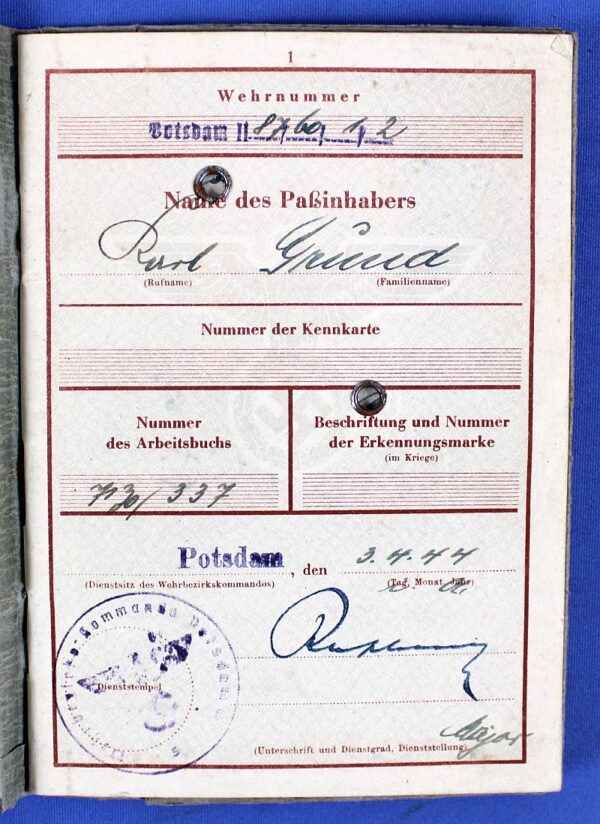 1
Wehrnummer
Potsdam II
Name des Paßinhabers
Karl Gründ
(Rufname) (Familienname)
Nummer der Kennkarte
Nummer
des Arbeitsbuchs
Beschriftung und Nummer
der Erkennungsmarke
(im Kriege)
337
Potsdam, den 3.4.44
(Dienstsitz des Wehrbezirkskommandos) (Tag, Monat, Jahr)
Dienststempel
Major
(Unterschrift und Dienstgrad, Dienststellung)